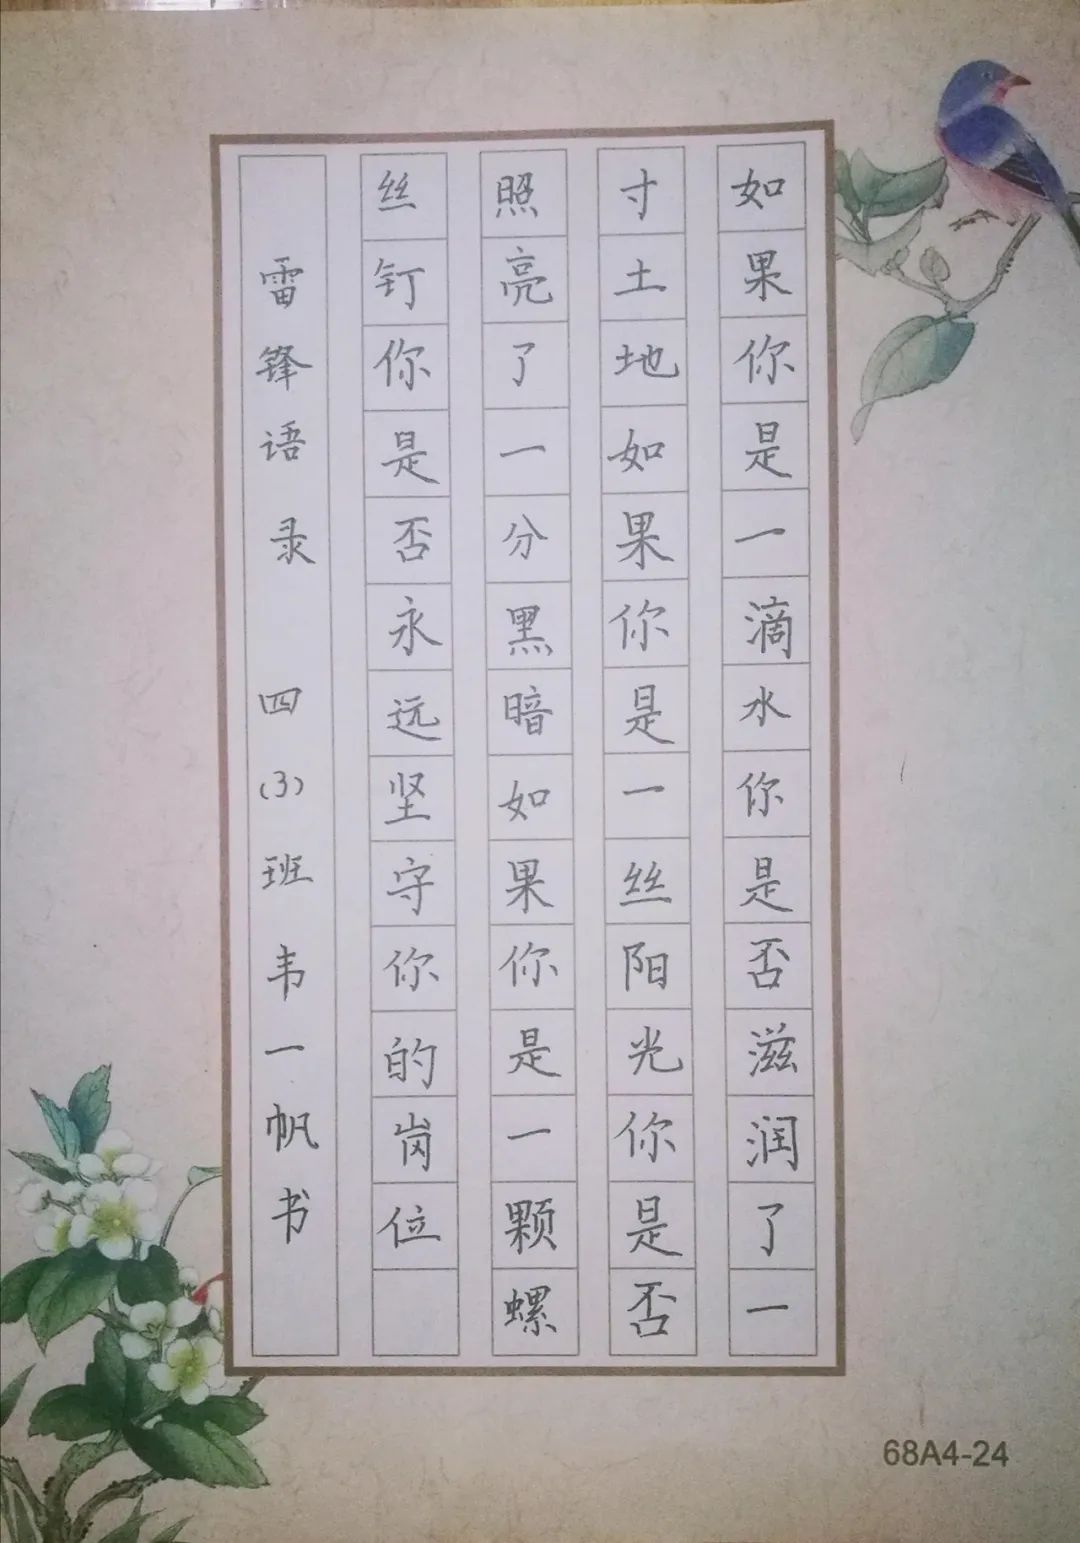 如果你是一滴水你是否滋润了一
寸土地如果你是一丝阳光你是否
照亮了一分黑暗如果你是一颗螺
丝钉你是否永远坚守你的岗位
雷锋语录 四(3)班韦一帆书
68A4-24